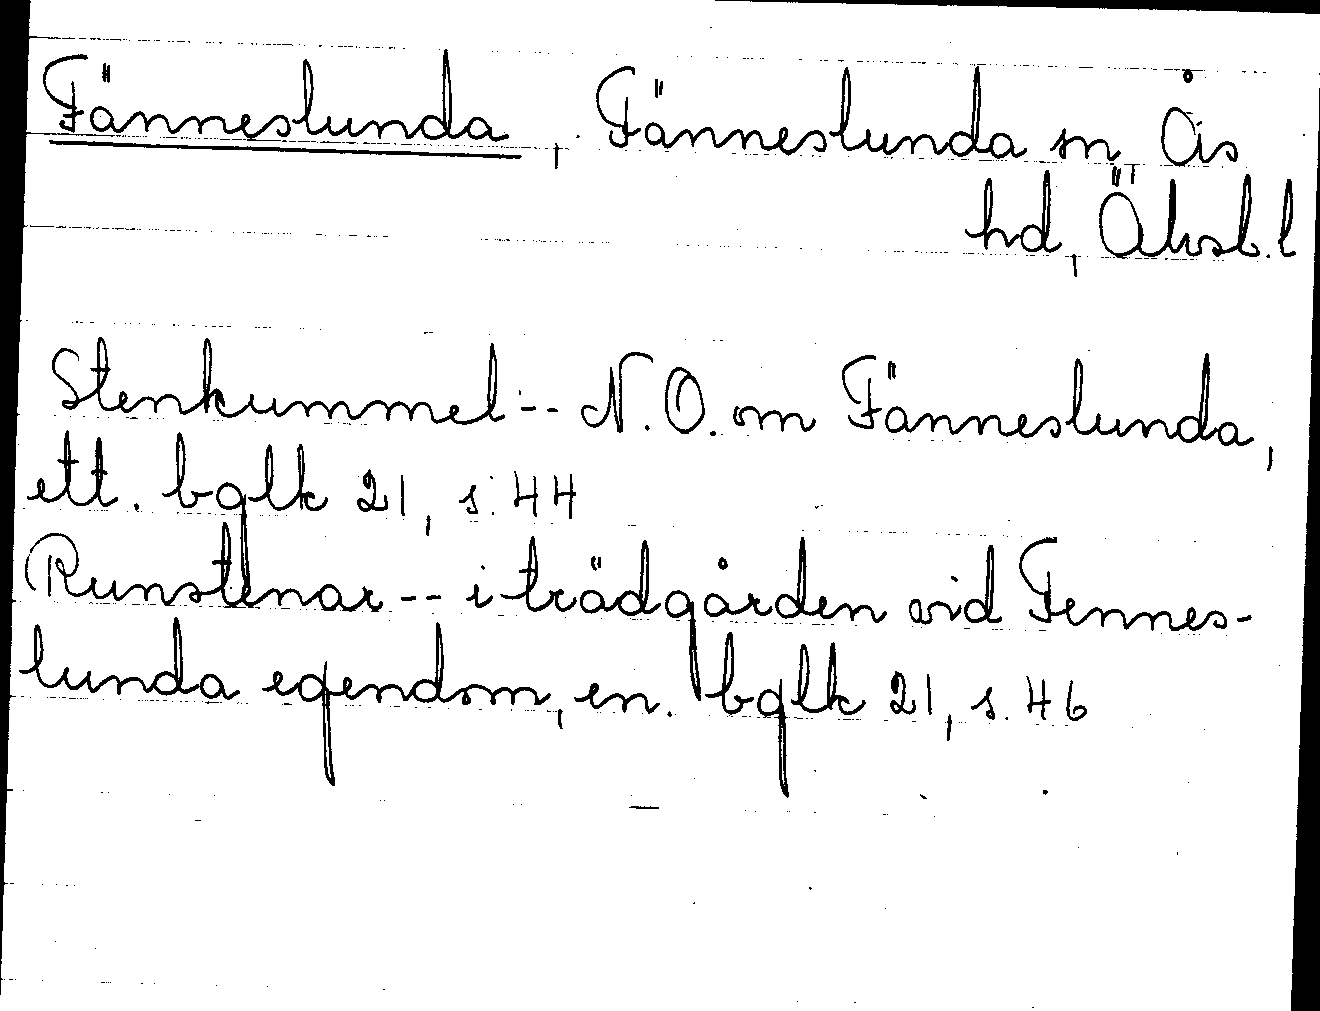 Fänneslunda, Fänneslunda sn, Ås
hd, Älvsb.l
Stenkummel -- N.O. om Fänneslunda,
ett. bglk 21, s. 44
Runstenar -- i trädgården vid Fennes-
lunda egendom, en. bglk 21, s. 46